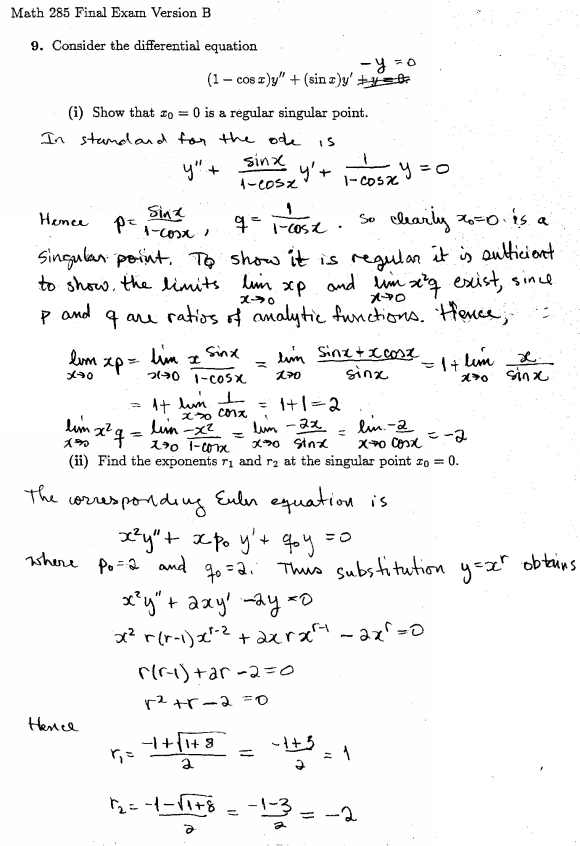 Math 285 Final Exam Version B
9. Consider the differential equation
-y = 0
(1 − cos x)y″ + (sin x)y′ + y = 0.
(i) Show that x₀ = 0 is a regular singular point.
In standard for the ode is
y″ + sinx/(1-cosx) y′ + 1/(1-cosx) y = 0
Hence p = sinx/(1-cosx), q = 1/(1-cosx). So clearly x₀=0 is a
singular point. To show it is regular it is sufficient
to show the limits lim x→0 xp and lim x→0 x²q exist, since
p and q are ratios of analytic functions. Hence,
lim x→0 xp = lim x→0 x sinx/(1-cosx) = lim x→0 (sinx + x cosx)/sinx = 1 + lim x→0 x/sinx
= 1 + lim x→0 1/cosx = 1+1=2
lim x→0 x²q = lim x→0 -x²/(1-cosx) = lim x→0 -2x/sinx = lim x→0 -2/cosx = -2
(ii) Find the exponents r₁ and r₂ at the singular point x₀ = 0.
The corresponding Euler equation is
x²y″ + xp₀ y′ + q₀y = 0
where p₀=2 and q₀=2. Thus substitution y=xʳ obtains
x²y″ + 2xy′ -2y = 0
x² r(r-1)xʳ⁻² + 2x r xʳ⁻¹ - 2xʳ = 0
r(r-1)+2r-2=0
r² + r - 2 = 0
Hence
r₁ = (-1+√(1+8))/2 = (-1+3)/2 = 1
r₂ = (-1-√(1+8))/2 = (-1-3)/2 = -2